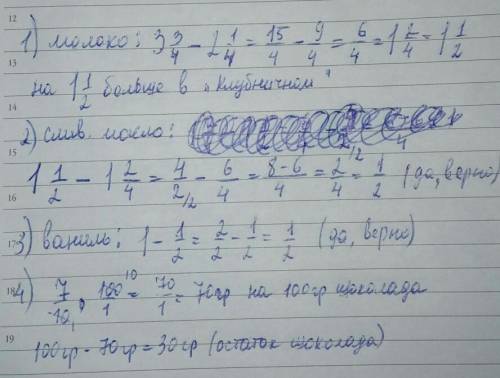 12
1) молоко: 3 3/4 - 2 1/4 = 15/4 - 9/4 = 6/4 = 1 2/4 = 1 1/2
13
на 1 1/2 больше в „Клубничном"
14
2) слив. масло:
15
1 1/2 - 1 2/4 = 4/2 - 6/4 = 8-6/4 = 2/4 = 1/2 (да, верно)
16
17
3) ваниль: 1 - 1/2 = 2/2 - 1/2 = 1/2 (да, верно)
18
4) 7/10 · 100/1 = 70/1 = 70гр на 100гр шоколада
19
100гр - 70гр = 30гр (остаток шоколада)